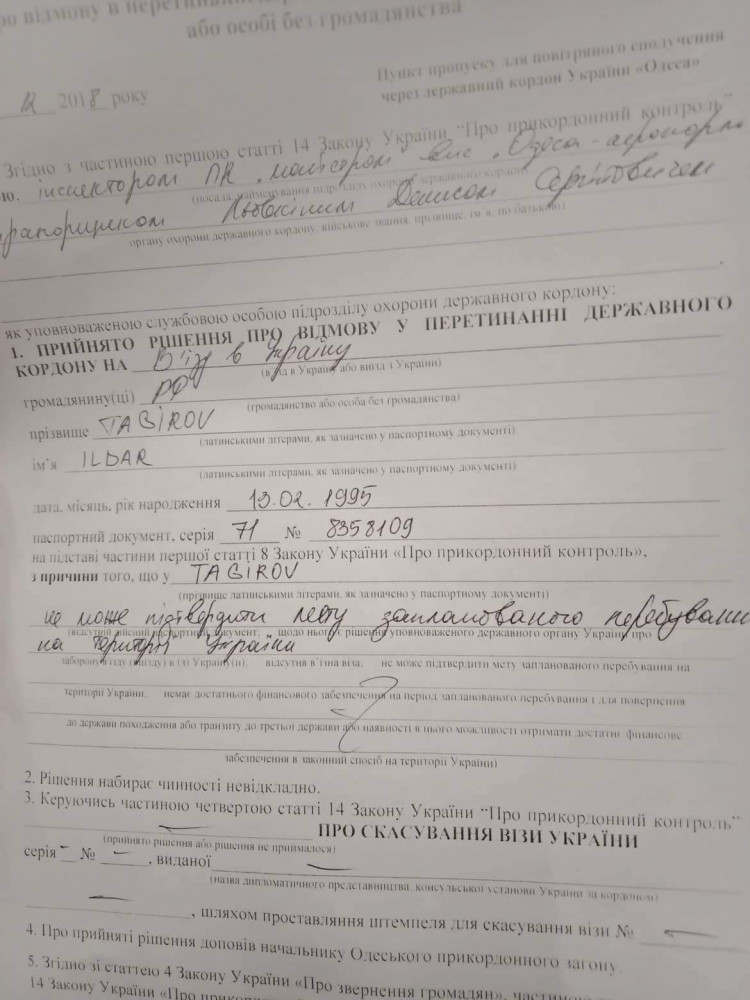 про відмову в перетинанні
або особі без громадянства
12 2018 року
Пункт пропуску для повітряного сполучення
через державний кордон України «Одеса»
Згідно з частиною першою статті 14 Закону України “Про прикордонний контроль”
ою, інспектором ПК
(посада, найменування підрозділу охорони державного кордону
прапорщиком Денисом Сергійовичем
органу охорони державного кордону, військове звання, прізвище, ім’я, по батькові)
як уповноваженою службовою особою підрозділу охорони державного кордону:
1. ПРИЙНЯТО РІШЕННЯ ПРО ВІДМОВУ У ПЕРЕТИНАННІ ДЕРЖАВНОГО
КОРДОНУ НА В'їзд в Україну
(в’їзд в Україну або виїзд з України)
громадянину(ці) РФ
(громадянство або особа без громадянства)
прізвище TAGIROV
(латинськими літерами, як зазначено у паспортному документі)
ім’я ILDAR
(латинськими літерами, як зазначено у паспортному документі)
дата, місяць, рік народження 13.02.1995
паспортний документ, серія 71 № 8358109
на підставі частини першої статті 8 Закону України «Про прикордонний контроль»,
з причини того, що у TAGIROV
(прізвище латинськими літерами, як зазначено у паспортному документі)
не може підтвердити мету запланованого перебування
(відсутній дійсний паспортний документ, щодо нього є рішення уповноваженого державного органу України про
на території України
заборону в’їзду (виїзду) в (з) Україну(и), відсутня в’їзна віза, не може підтвердити мету запланованого перебування на
території України, немає достатнього фінансового забезпечення на період запланованого перебування і для повернення
до держави походження або транзиту до третьої держави або наявності в нього можливості отримати достатнє фінансове
забезпечення в законний спосіб на території України)
2. Рішення набирає чинності невідкладно.
3. Керуючись частиною четвертою статті 14 Закону України “Про прикордонний контроль”
– ПРО СКАСУВАННЯ ВІЗИ УКРАЇНИ
(прийнято рішення або рішення не приймалося)
серія – № –, виданої –
(назва дипломатичного представництва, консульської установи України за кордоном)
–, шляхом проставляння штемпеля для скасування візи № –
4. Про прийняті рішення доповів начальнику Одеського прикордонного загону.
5. Згідно зі статтею 4 Закону України «Про звернення громадян», частиною
14 Закону України «Про прикордонний